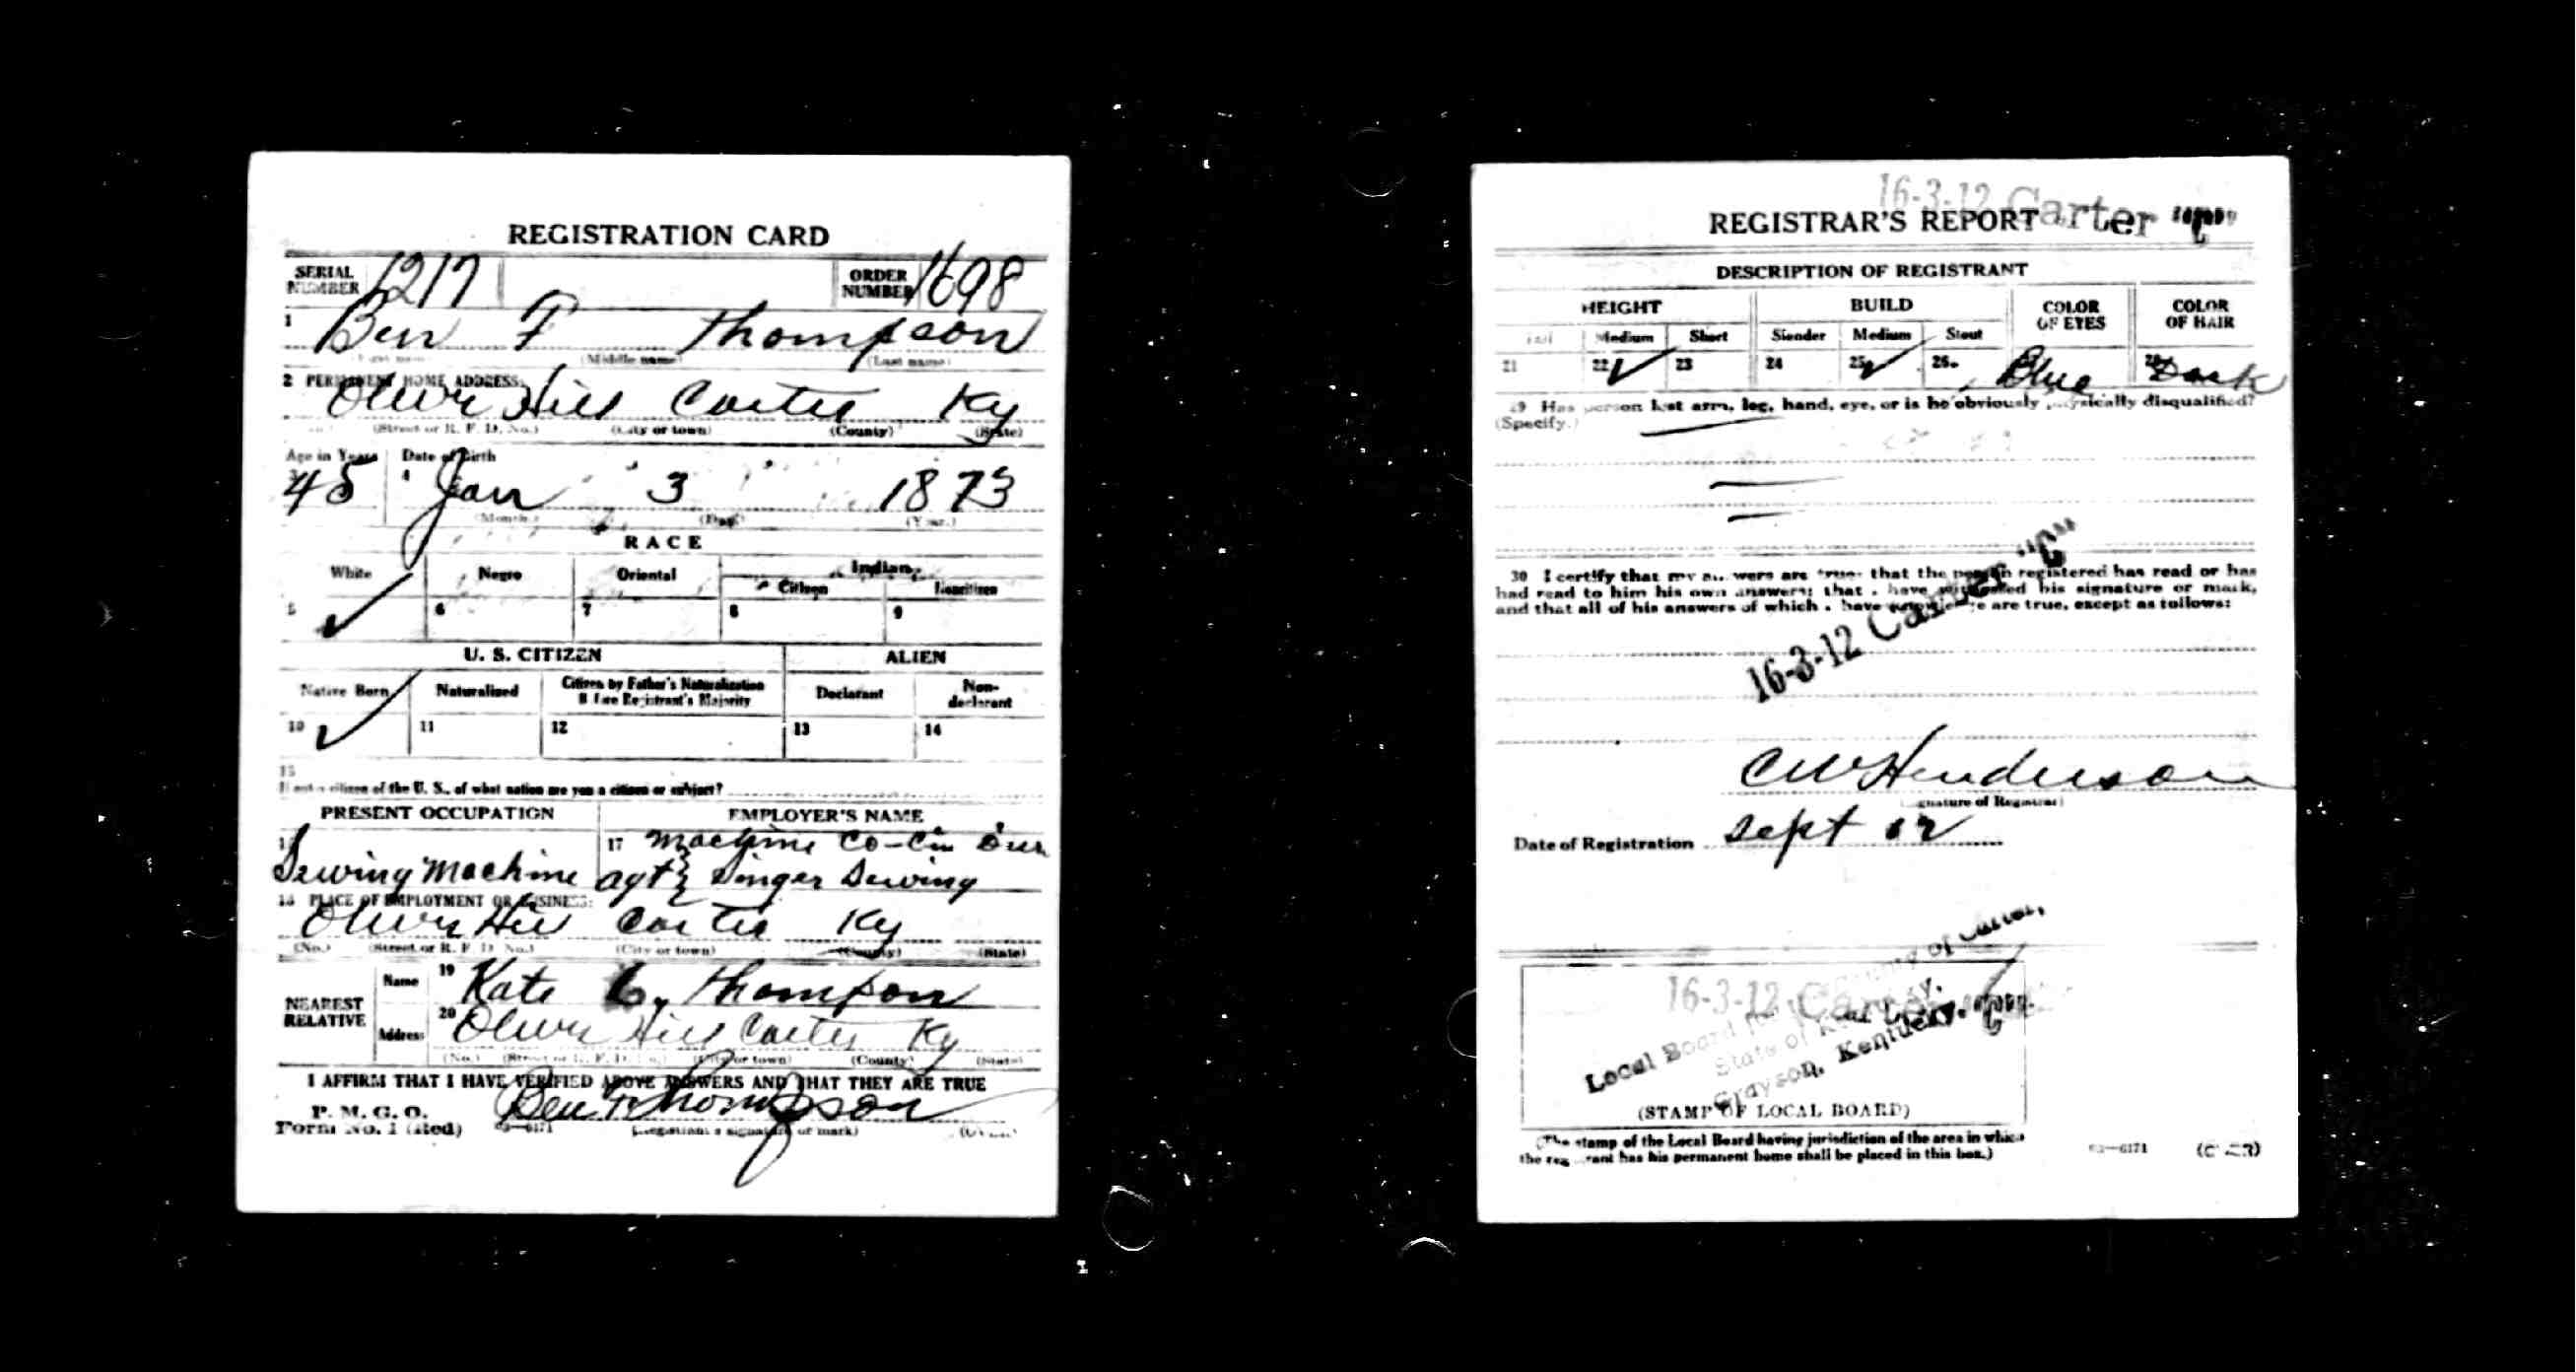 REGISTRATION CARD
SERIAL NUMBER 1217 ORDER NUMBER 1698
1 Ben F Thompson
(Middle name) (Last name)
2 PERMANENT HOME ADDRESS:
Olive Hill Carter Ky
(Street or R. F. D. No.) (City or town) (County) (State)
Age in Years Date of Birth
3 45 4 Jan 3 1873
(Month.) (Day.) (Year.)
RACE
White Negro Oriental Indian
Citizen Noncitizen
5 ✓ 6 7 8 9
U. S. CITIZEN ALIEN
Native Born Naturalized Citizen by Father's Naturalization Before Registrant's Majority Declarant Non-declarant
10 ✓ 11 12 13 14
15
If not a citizen of the U. S., of what nation are you a citizen or subject?
PRESENT OCCUPATION EMPLOYER'S NAME
17 Machine Co-Cin
Sewing Machine agt Singer Sewing
18 PLACE OF EMPLOYMENT OR BUSINESS:
Olive Hill Carter Ky
(No.) (Street or R. F. D. No.) (City or town) (County) (State)
NEAREST RELATIVE
Name 19 Kate Thompson
Address 20 Olive Hill Carter Ky
(No.) (Street or R. F. D. No.) (City or town) (County) (State)
I AFFIRM THAT I HAVE VERIFIED ABOVE ANSWERS AND THAT THEY ARE TRUE
P. M. G. O.
Form No. 1 (Red) Ben F Thompson
(Registrant's signature or mark) (OVER)
16-3-12 Carter
REGISTRAR'S REPORT
DESCRIPTION OF REGISTRANT
HEIGHT BUILD COLOR OF EYES COLOR OF HAIR
Tall Medium Short Slender Medium Stout
21 22 ✓ 23 24 25 ✓ 26 Blue Dark
29 Has person lost arm, leg, hand, eye, or is he obviously physically disqualified?
(Specify.)
30 I certify that my answers are true; that the person registered has read or has
had read to him his own answers; that I have witnessed his signature or mark,
and that all of his answers of which I have knowledge are true, except as follows:
16-3-12 Carter "C"
C W Henderson
(Signature of Registrar)
Date of Registration Sept 12
16-3-12 Carter
Local Board for County of Carter,
State of Kentucky.
Grayson, Kentucky.
(STAMP OF LOCAL BOARD)
(The stamp of the Local Board having jurisdiction of the area in which
the registrant has his permanent home shall be placed in this box.)
03—6171 (OVER)